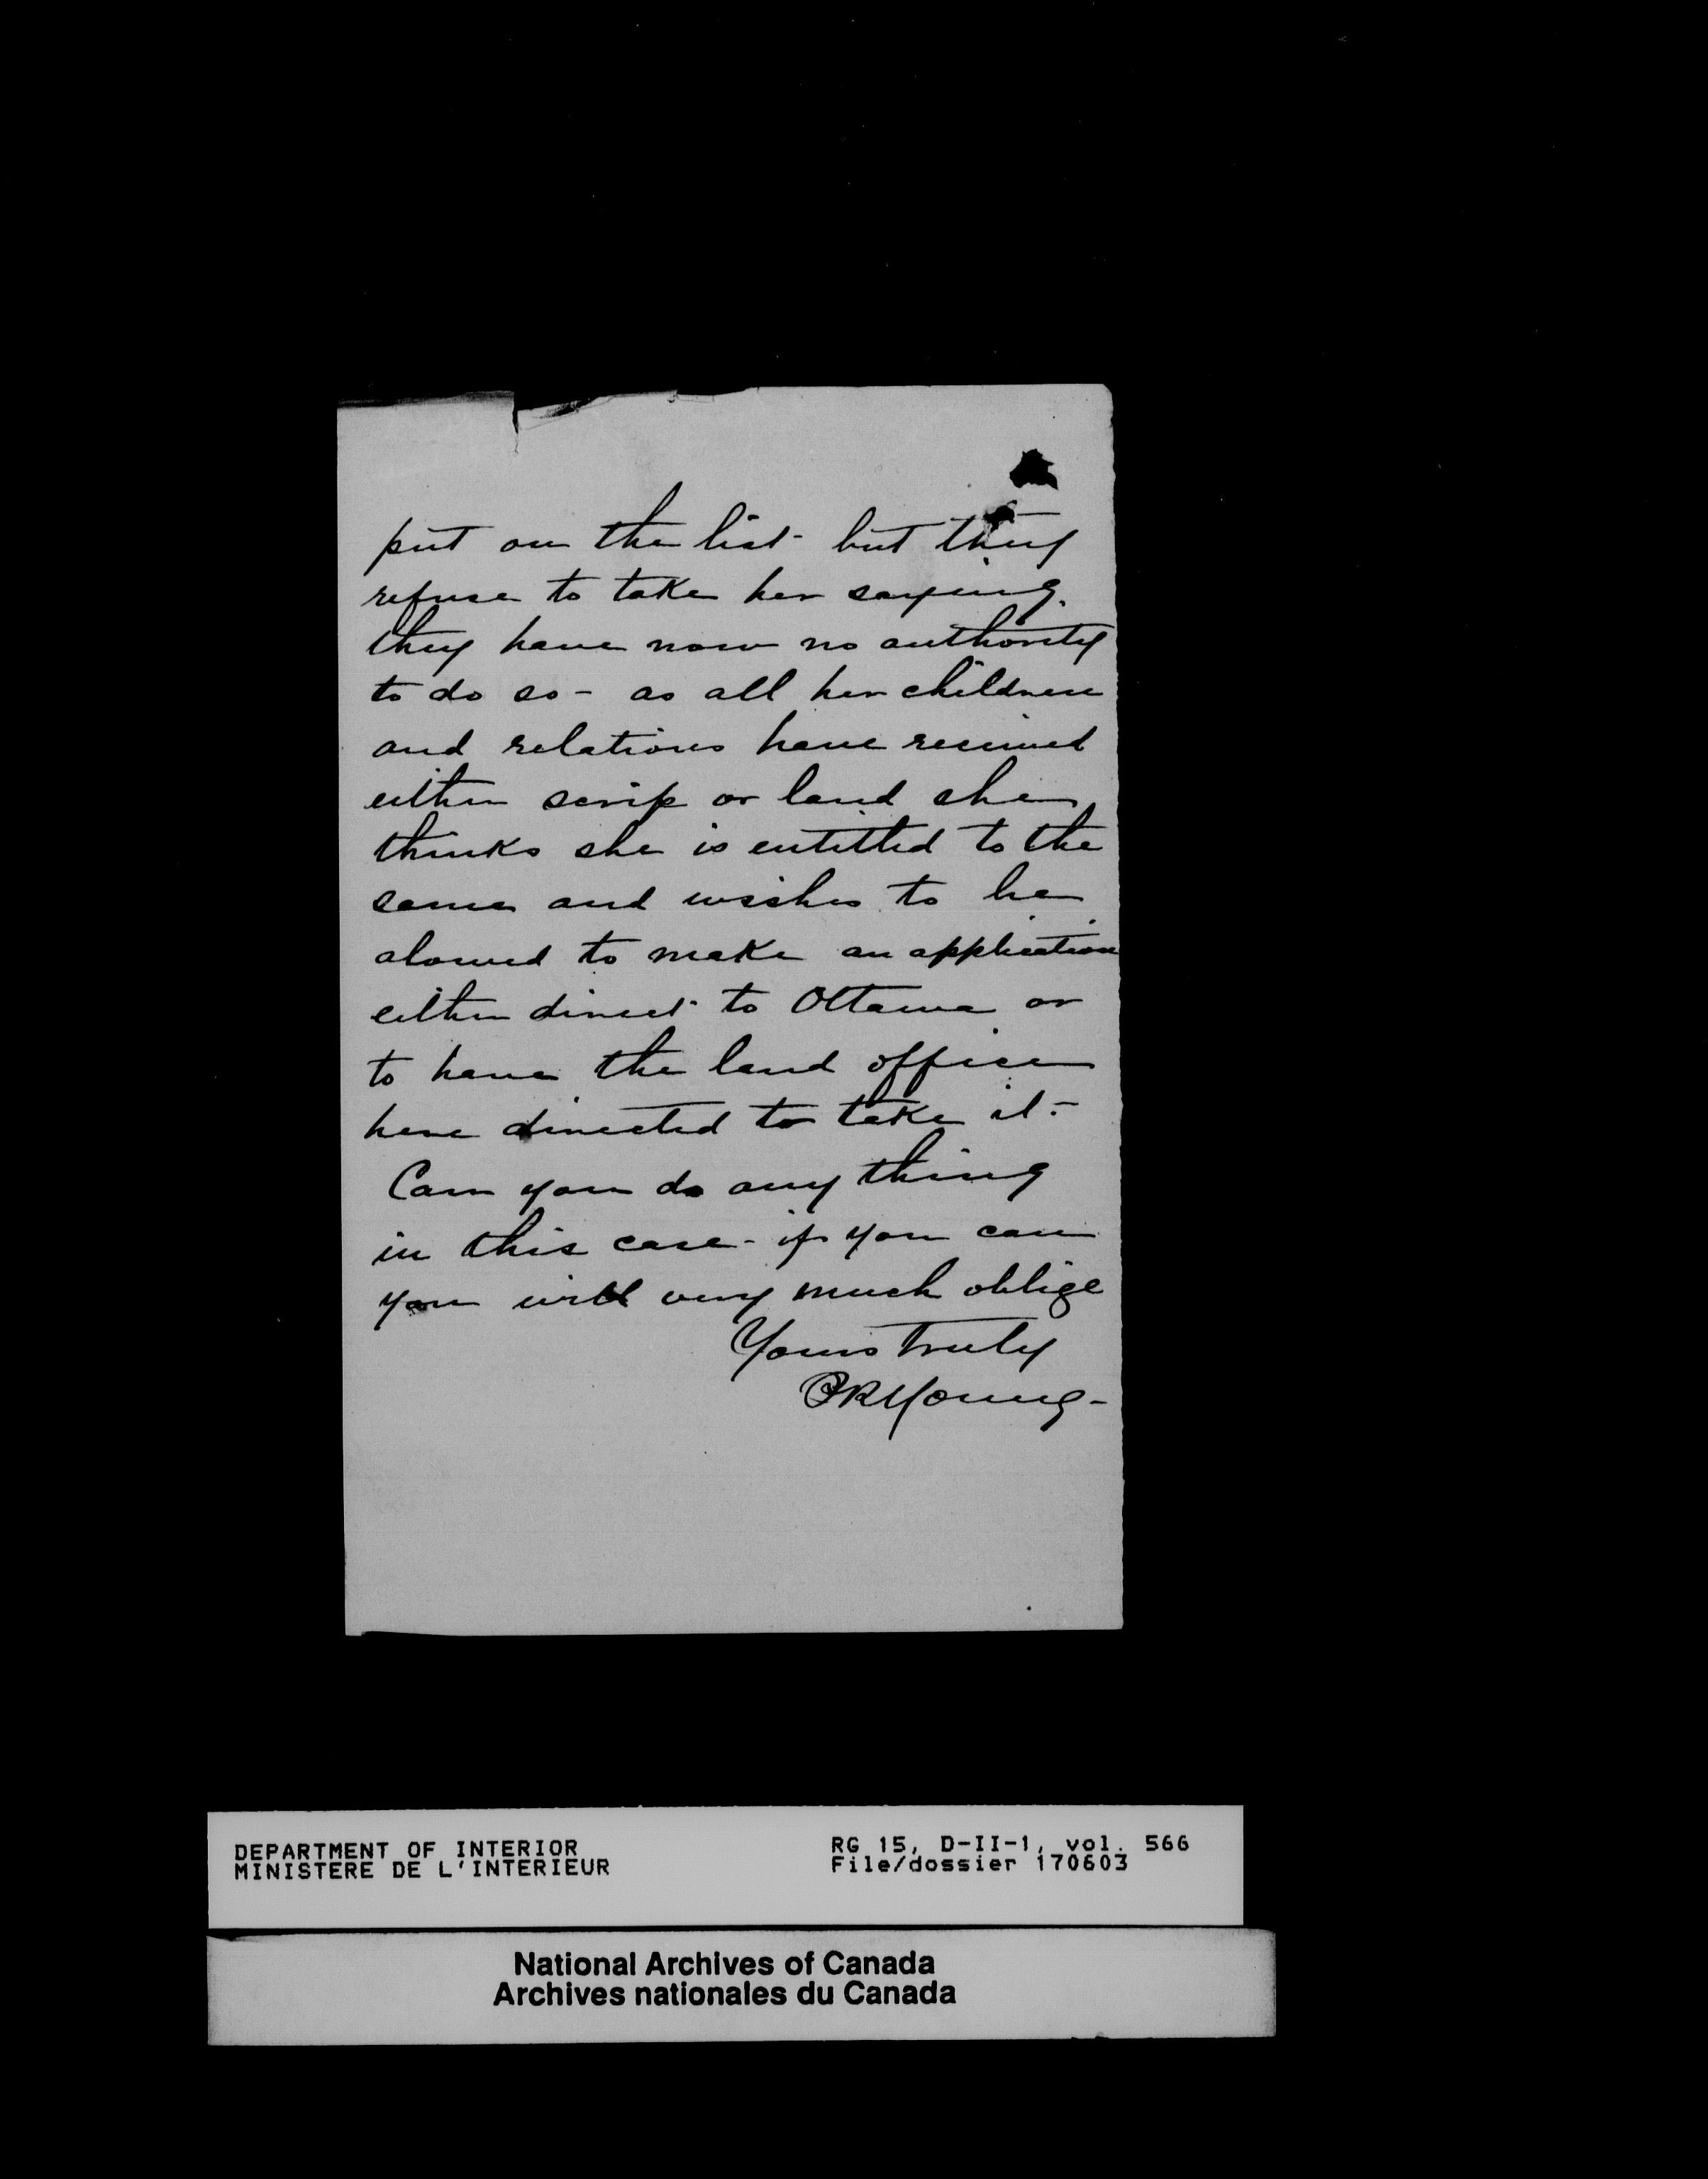 put on the list - but they
refuse to take her saying
they have now no authority
to do so - as all her children
and relations have received
either scrip or land she
thinks she is entitled to the
same and wishes to be
alowed to make an application
either direct to Ottawa or
to have the land office
here directed to take it -
Can you do any thing
in this case - if you can
you will very much oblige
Yours truly
RYoung -
DEPARTMENT OF INTERIOR
MINISTERE DE L'INTERIEUR
RG 15, D-II-1, vol. 566
File/dossier 170603
National Archives of Canada
Archives nationales du Canada